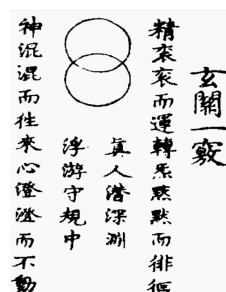 玄關一竅
精袞袞而運轉炁默默而徘徊
眞人潛深淵
浮游守規中
神混混而徃來心澄澄而不動